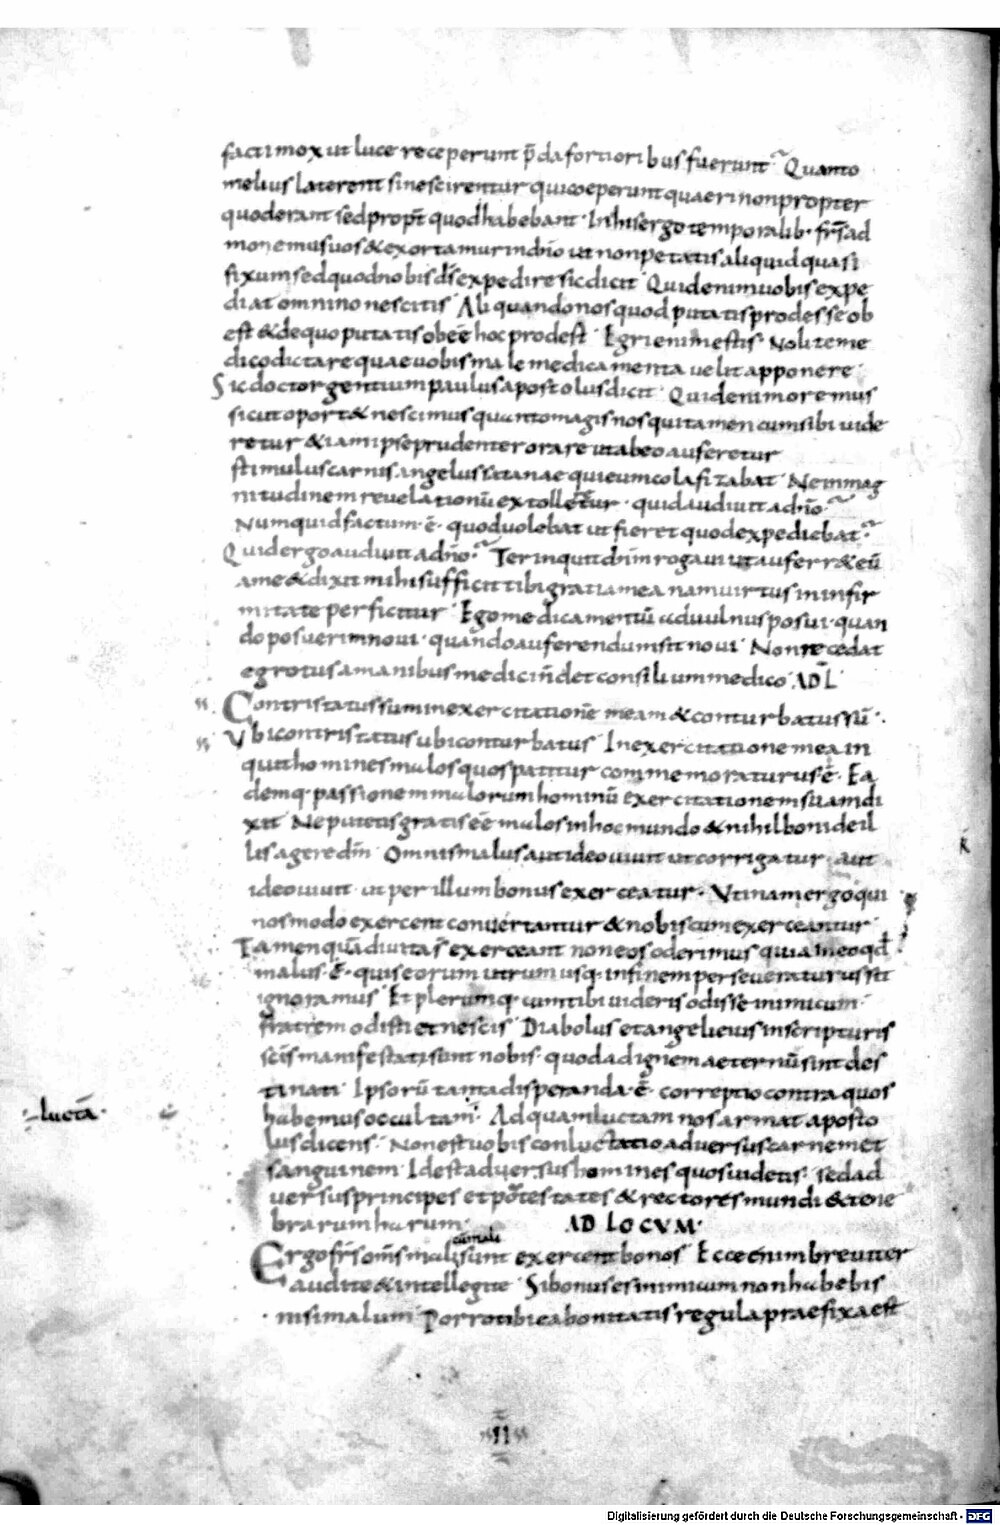 facti mox ut luce receperunt p̄da fortioribus fuerunt Quanto
melius laterent si nescirentur qui coeperunt quaeri non propter
quod erant sed propt̄ quod habebant· In his ergo temporalib· fr̄s ad
monemus uos & exortamur in dn̄o ut non petatis aliquid quasi
fixum sed quod nobis d̄s expedire sic dicit Quid enim uobis expe
diat omnino nescitis Aliquando nos quod putatis prodesse ob
est & de quo putatis obeē hoc prodest· Egri enim estis· Nolite me
dico dictare quae uobis male medicamenta uelit apponere
Sic doctor gentium paulus apostolus dicit Quid enim oremus
sicut oport& nescimus quanto magis nos qui tamen cum sibi uide
retur & iam ipse prudenter orare ut abeo auferetur
stimulus carnis angelus satanae qui eum colafizabat Ne in mag
nitudinem reuelationū extolletur· quid audiuit a dn̄o
Numquid factum·ē· quod uolebat ut fieret quod expediebat
Quid ergo audiuit a dn̄o· Ter inquit dn̄m rogaui ut auferr& eū
a me & dixit mihi sufficit tibi gratia mea nam uirtus in infir
mitate perficitur Ego medicamentū ad uulnus posui· quan
do posuerim noui· quando auferendum sit noui Non recedat
egrotus a manibus medici n̄ det consilium medico AD L̄
Contristatus sum in exercitatione meam & conturbatus sū·
Ubi contristatus ubi conturbatus In exercitatione mea in
quit homines malos quos patitur commemoraturus ē· Ea
demq· passionem malorum hominū exercitationem suam di
xit Ne putetis gratis eē malos in hoc mundo & nihil boni de il
lis agere dm̄ Omnis malus aut ideo uiuit ut corrigatur aut
ideo uiuit ut per illum bonus exerceatur· Utinam ergo qui
nos modo exercent conuertantur & nobiscum exerceantur
Tamen quādiu ita s̄ exerceant non eos oderimus quia in eo qd̄
malus·ē· quis eorum utrum usq· in finem perseueraturus sit
ignoramus Et plerumq· cum tibi uideris odisse inimicum
fratrem odisti et nescis Diabolus et angeli eius in scripturis
sc̄is manifestati sunt nobis· quod ad ignem aeternū sint des
tinati Ipsorū tanta disperanda·ē· correptio contra quos
habemus occultam Ad quam luctam nos armat aposto
lus dicens· Non est uobis conluctatio aduersus carnem et
sanguinem Id est aduersus homines quos uidetis· sed ad
uersus principes et potestates & rectores mundi & tene
brarum harum· AD LOCVM·
Ergo fr̄s om̄s mali sunt exercent bonos Ecce enim breuiter
audite & intellegite Si bonus es inimicum non habebis
nisi malum Porro tibi ea bonitatis regula praefixa est
luctā·
II
Digitalisierung gefördert durch die Deutsche Forschungsgemeinschaft - DFG